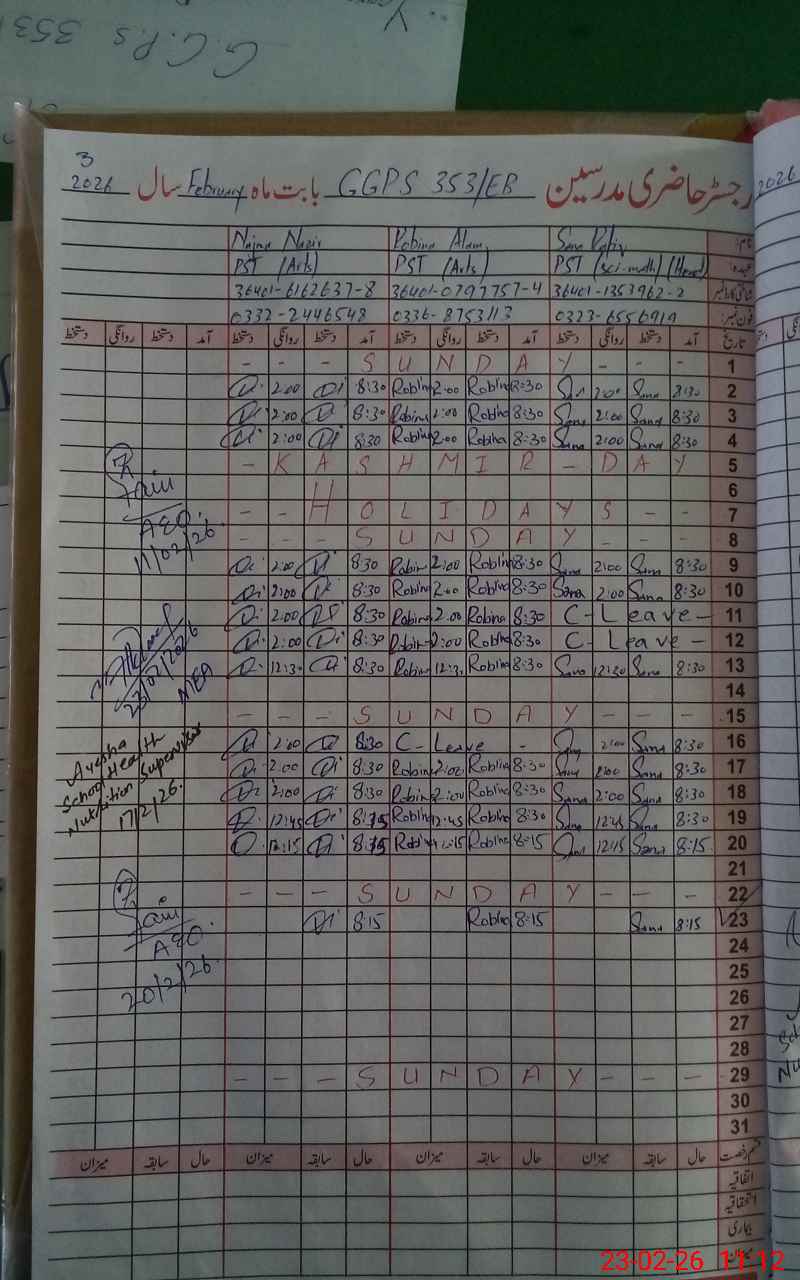 G.G.P.S 353
3
2026 سال February بابت ماہ GGPS 353/EB رجسٹر حاضری مدرسین
2026
Najma Nazir Robina Alam Sana Rafiq نام:
PST (Arts) PST (Arts) PST (Sci-math) (Head) عہدہ:
36401-6162637-8 36401-0797757-4 36401-1353962-2 شناختی کارڈ نمبر
0332-2446548 0336-8753113 0323-6556919 فون نمبر:
دستخط روانگی دستخط آمد دستخط روانگی دستخط آمد دستخط روانگی دستخط آمد دستخط روانگی دستخط آمد تاریخ
- - - S U N D A Y - - - 1
2:00 8:30 Robina 2:00 Robina 8:30 2:00 Sana 8:30 2
2:00 8:30 Robina 2:00 Robina 8:30 Sana 2:00 Sana 8:30 3
2:00 8:30 Robina 2:00 Robina 8:30 Sana 2:00 Sana 8:30 4
- K A S H M I R - D A Y 5
6
- - H O L I D A Y S - - 7
- - - S U N D A Y - - - 8
AEO.
11/02/26
2:00 8:30 Robina 2:00 Robina 8:30 Sana 2:00 Sana 8:30 9
2:00 8:30 Robina 2:00 Robina 8:30 Sana 2:00 Sana 8:30 10
2:00 8:30 Robina 2:00 Robina 8:30 C - Leave - 11
2:00 8:30 Robina 2:00 Robina 8:30 C - Leave - 12
12:30 8:30 Robina 12:30 Robina 8:30 Sana 12:30 Sana 8:30 13
MEA
14
- - - S U N D A Y - - - 15
2:00 8:30 C - Leave - Sana 2:00 Sana 8:30 16
2:00 8:30 Robina 2:00 Robina 8:30 Sana 2:00 Sana 8:30 17
2:00 8:30 Robina 2:00 Robina 8:30 Sana 2:00 Sana 8:30 18
12:45 Robina 12:45 Robina 8:30 Sana 12:45 Sana 8:30 19
12:15 Robina 12:15 Robina 8:15 Sana 12:15 Sana 8:15 20
Ayesha
School Health
Nutrition Supervisor
17/2/26.
21
- - - S U N D A Y - - - 22
8:15 Robina 8:15 Sana 8:15 23
AEO.
20/2/26.
24
25
26
27
28
- - - S U N D A Y - - - 29
30
31
میزان سابقہ حال میزان سابقہ حال میزان سابقہ حال میزان سابقہ حال قسم رخصت
اتفاقیہ
استحقاقیہ
بیماری
میزان
23-02-26 11:12